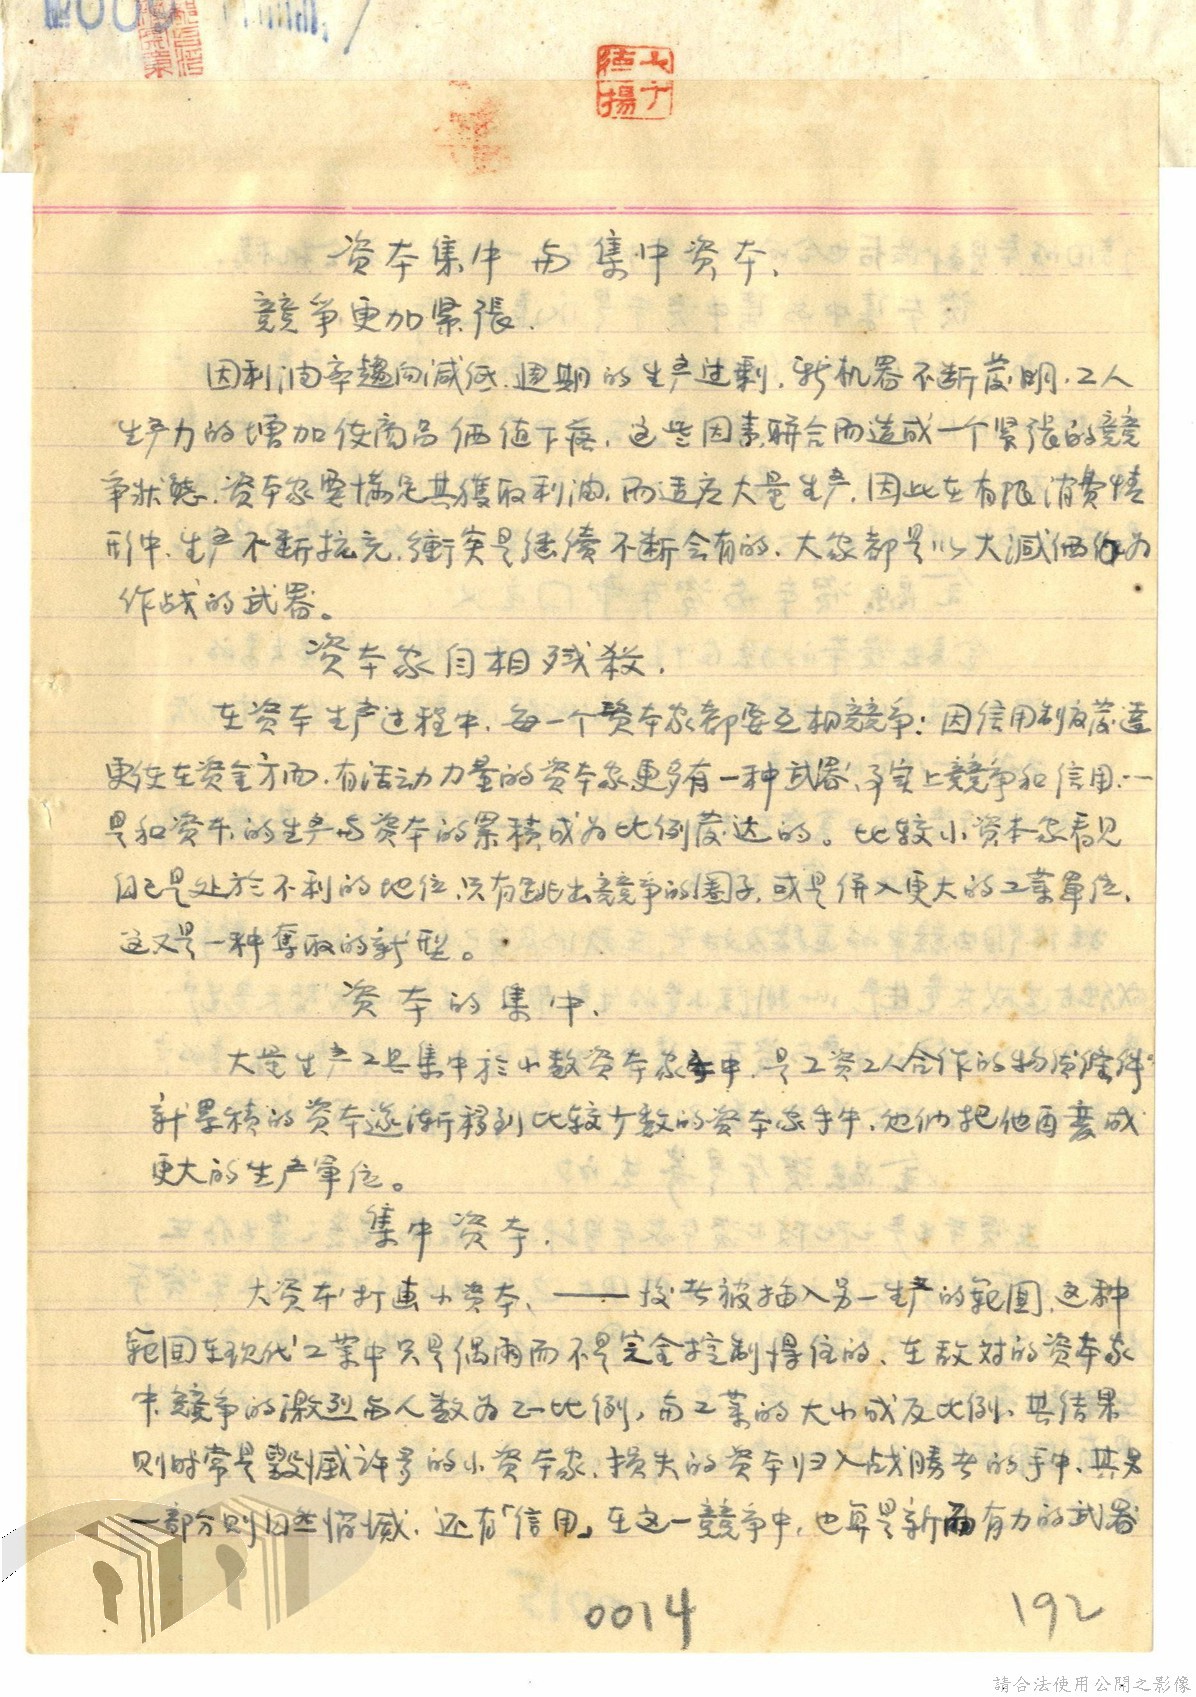 资本集中与集中资本、
競争更加紧張.
因利油率趨向减低、週期的生产过剩,新机器不断发明,工人
生产力的增加使商品価值下落,这些因素联合而造成一个紧张的競
争狀態,资本家要满足其獲取利油,而适应大量生产,因此在有限消费情
形中,生产不断扩充,衝突是继续不断会有的,大家都是以大减価作为
作战的武器。
资本家自相残殺.
在资本生产过程中,每一个资本家都要互相競争;因信用制度发達
更使在资金方面,有活动力量的资本家更多有一种武器,事实上競争和信用,一
是和资本,的生产与资本的累積成为比例发达的。比较小资本家看见
自己是处於不利的地位,只有跳出競争的圈子,或是併入更大的工業單位,
这又是一种奪取的新型。
资本的集中、
大量生产工具集中於小数资本家手中,是工资工人合作的物质條件
新累積的资本逐渐移到比较少数的资本家手中,他们把他再变成
更大的生产單位。
集中资本.
大资本打連小资本、——後者被插入另一生产的範圍,这种
範围在现代工業中只是偶爾而不是完全控制得住的、在敌对的资本家
中,競争的激烈与人数为正比例,与工業的大小成反比例、其结果
则时常是毀滅许多的小资本家,损失的资本归入战勝者的手中、其另
一部分则自然消滅,还有「信用」在这一競争中,也算是新而有力的武器
0014 192
請合法使用公開之影像